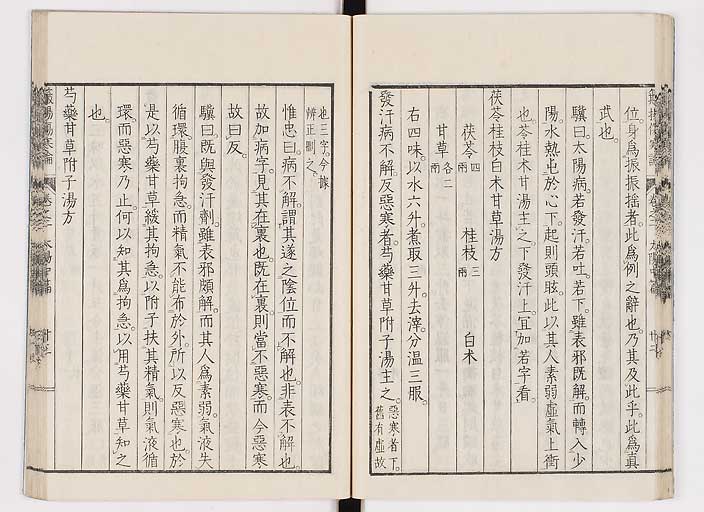 位身爲振振搖者此爲例之辭也乃其及此乎此爲眞
武也
驥曰太陽病若發汗若吐若下雖表邪既解而轉入少
陽水熱屯於心下起則頭眩此以其人素弱虛氣上衝
也苓桂木甘湯主之下發汗上宜加若字看
茯苓桂枝白朮甘草湯方
茯苓四兩 桂枝三兩 白朮
甘草各二兩
右四味以水六升煮取三升去滓分温三服
發汗病不解反惡寒者芍藥甘草附子湯主之惡寒者下
舊有虛故
也三字今據
辨正刪之
惟忠曰病不解謂其遂之陰位而不解也非表不解也
故加病字見其在裏也既在裏則當不惡寒而今惡寒
故曰反
驥曰既與發汗劑雖表邪頗解而其人爲素弱氣液失
循環腹裏拘急而精氣不能布於外所以反惡寒也於
是以芍藥甘草緩其拘急以附子扶其精氣則氣液循
環而惡寒乃止何以知其爲拘急以用芍藥甘草知之
也
芍藥甘草附子湯方